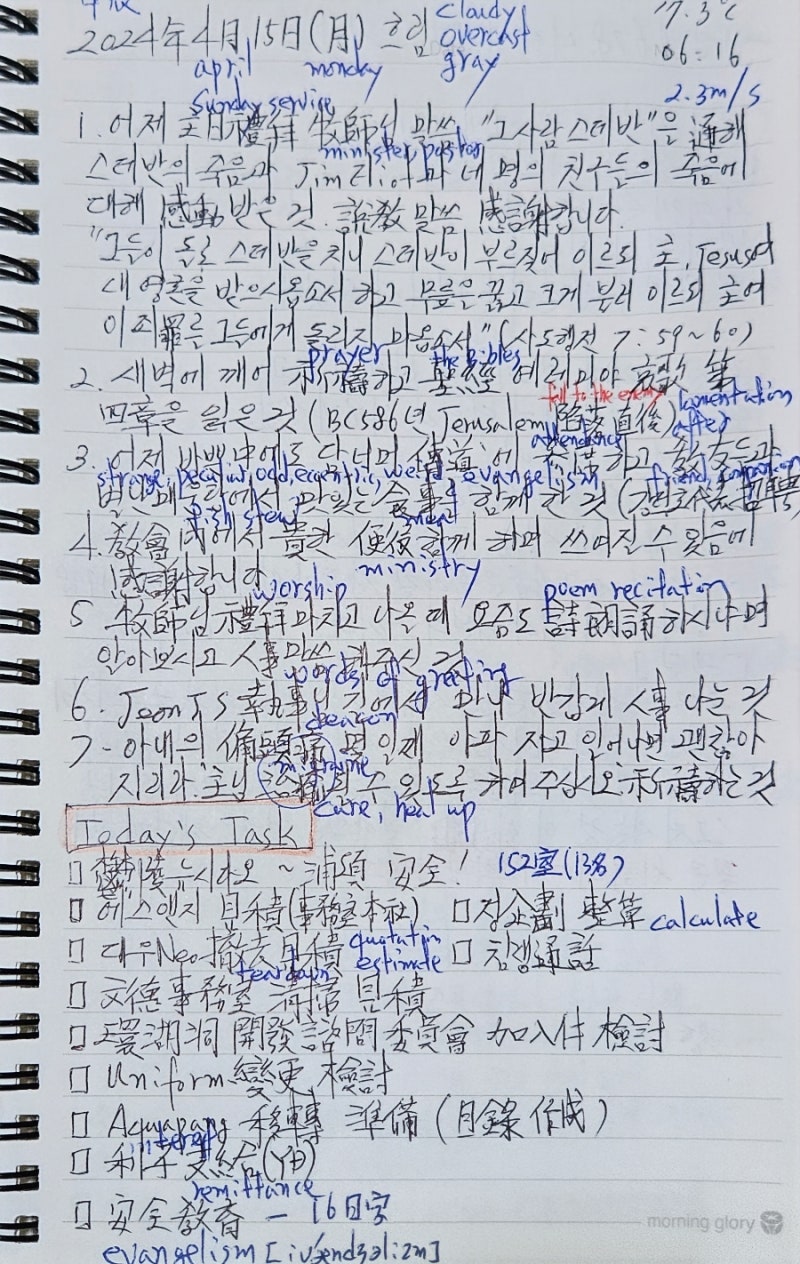 cloudy
2024年 4月 15日(月) 흐림 overcast 17.3℃
april monday gray 06:16
Sunday service 2.3m/s
1. 어제 主日禮拜 牧師님 말씀 "그 사람 스데반"을 通해
minister, pastor
스데반의 죽음과 Jim Elliot과 네 명의 친구들의 죽음에
대해 感動 받은 것. 說敎 말씀 感謝합니다.
"그들이 돌로 스데반을 치니 스데반이 부르짖어 이르되 主, Jesus여
내 영혼을 받으시옵소서 하고 무릎을 꿇고 크게 불러 이르되 主여
이 죄罪를 그들에게 돌리지 마옵소서" (사도행전 7:59~60)
prayer the Bibles
2. 새벽에 깨어 祈禱하고 聖經 예레미야 哀歌 第
fall to the enemy lamentation
四章을 읽은 것 (BC586년 Jerusalem 陷落 直後)
attendance after
3. 어제 바쁜 中에도 다니며 傳道에 하고 敎友들과
strange, peculiar, odd, eccentric, weird evangelism friend, companion
맛있는 食事를 함께 한 것
fish stew meal
4. 敎會 內에서 貴한 使役 함께 하며 쓰여질 수 있음에
ministry
感謝합니다
worship poem recitation
5. 牧師님 禮拜 마치고 나올 때 요즘도 詩朗誦 하시냐며
알아보시고 人事 말씀 해주신 것
words of greeting
6. Joon JS 執事님 만나 반갑게 人事 나눈 것
deacon
7. 아내의 偏頭痛 며칠째 아파 자고 일어나면 괜찮아
migraine
지리라. 主님 治癒될 수 있도록 하여 주십시오. 祈禱하는 것
cure, heal up
Today's Task
□ 浦項 安全! 152室(13名)
□ 에스엔지 見積(事務室 本社) □ 정企劃 整算 calculate
□ 대우Neo 撤去 見積 quotation □ 通話
teardown estimate
□ 文德 事務室 淸掃 見積
□ 環湖洞 開發 諮問 委員會 加入件 檢討
□ Uniform 變更 檢討
□ Aquapang 移轉 準備 (目錄 作成)
interest
□ 利子
remittance
□ 安全敎育 - 16日字
evangelism [ivǽndʒəlizm]
morning glory